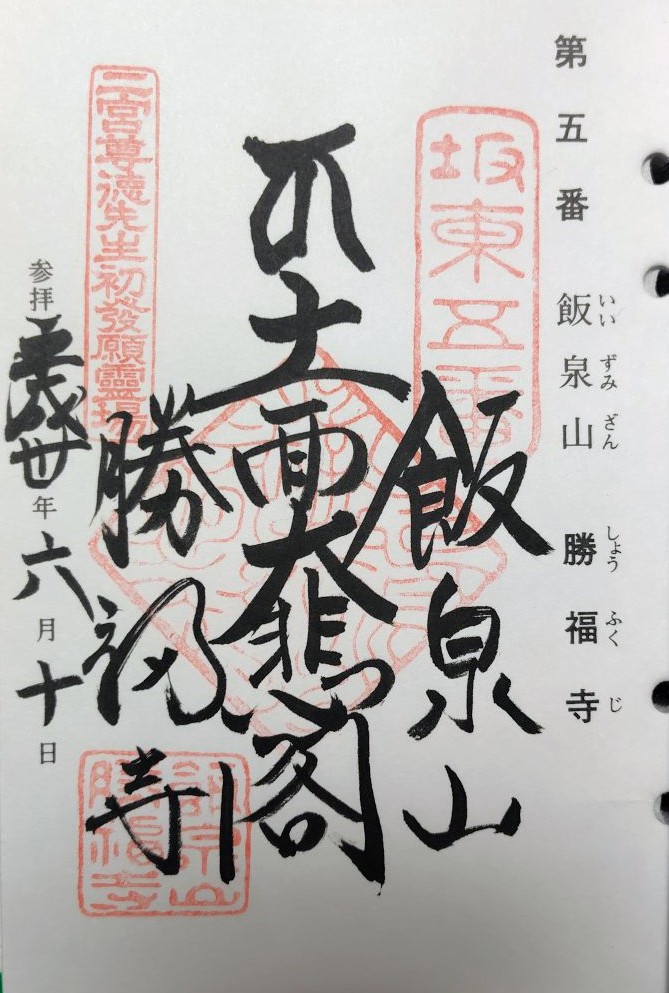 第五番 飯泉山 勝福寺
いいずみざん しょうふくじ
坂東五番
飯泉山
十一面大悲閣
勝福寺
飯泉山
勝福寺
二宮尊德先生初發願靈場
参拝 平成卅年六月十日